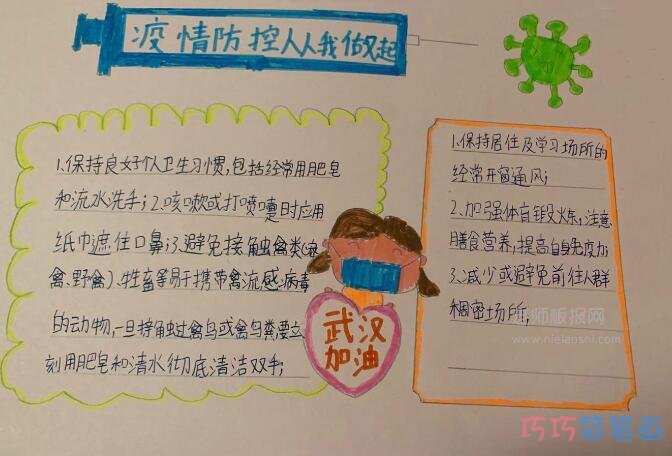 疫情防控人人从我做起
1.保持良好个人卫生习惯,包括经常用肥皂
和流水洗手;2.咳嗽或打喷嚏时应用
纸巾遮住口鼻;3.避免接触禽类(家
禽、野禽)、牲畜等易于携带禽流感病毒
的动物,一旦接触过禽鸟或禽鸟粪要立
刻用肥皂和清水彻底清洁双手;
武汉
加油
1.保持居住及学习场所的
经常开窗通风;
2.加强体育锻炼,注意
膳食营养,提高自身免疫力;
3.减少或避免前往人群
稠密场所;
老师板报网
www.nielaoshi.com
巧巧简笔画